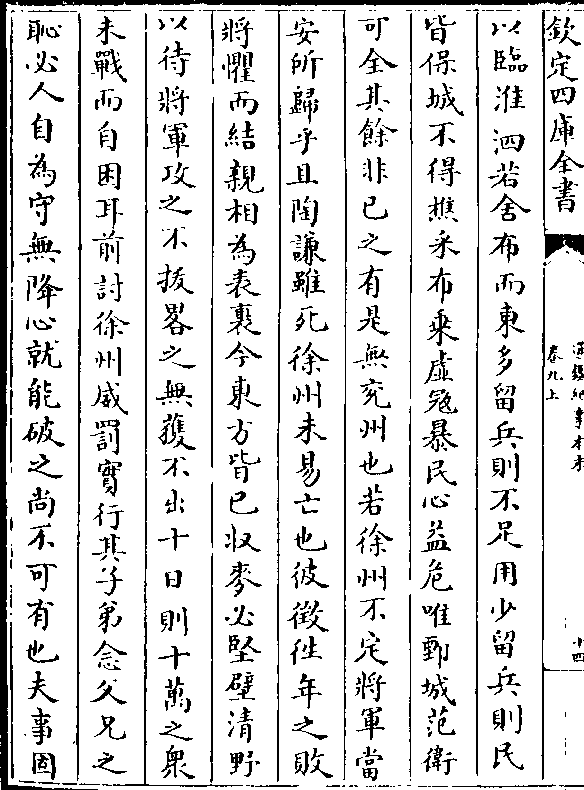 欽定四庫全書
通鑑紀事本末
卷九上
十四
以臨淮泗若舍布而東多留兵則不足用少留兵則民
皆保城不得樵采布乘虛寇暴民心益危唯鄄城范衛
可全其餘非已之有是無兖州也若徐州不定將軍當
安所歸乎且陶謙雖死徐州未易亡也彼徵徃年之敗
將懼而結親相為表裏今東方皆已収麥必堅壁清野
以待將軍攻之不拔畧之無獲不出十日則十萬之衆
未戰而自困耳前討徐州威罰實行其子弟念父兄之
恥必人自為守無降心就能破之尚不可有也夫事固